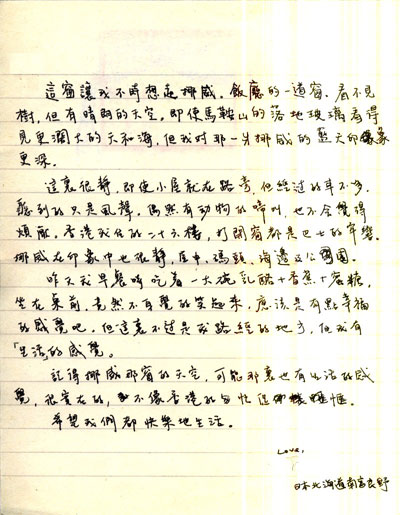 這窗讓我不時想起挪威。飯廳的一道窗，看不見
樹，但有晴朗的天空，即使馬鞍山的落地玻璃看得
見更濶大的天和海，但我對那一片挪威的藍天印象
更深。
這裏很靜，即使小屋就在路旁，但經過的車不多，
聽到的只是風聲，偶然有動物的啼叫，也不會覺得
煩厭，香港我住的二十六樓，打開窗都是巴士的聲響。
挪威在印象中也很靜，屋中，碼頭，海邊及公園。
昨天我早餐時吃着一大碗乳酪+香蕉+蜜糖，
坐在桌前，竟然不自覺的笑起來，應該是有點幸福
的感覺吧，但這裏不過是我路經的地方，但我有
「生活」的感覺。
記得挪威那窗的天空，可能那裏也有生活的感
覺，很實在的，不像香港的匆忙
希望我們都快樂地生活。
Love,
日本北海道南富良野